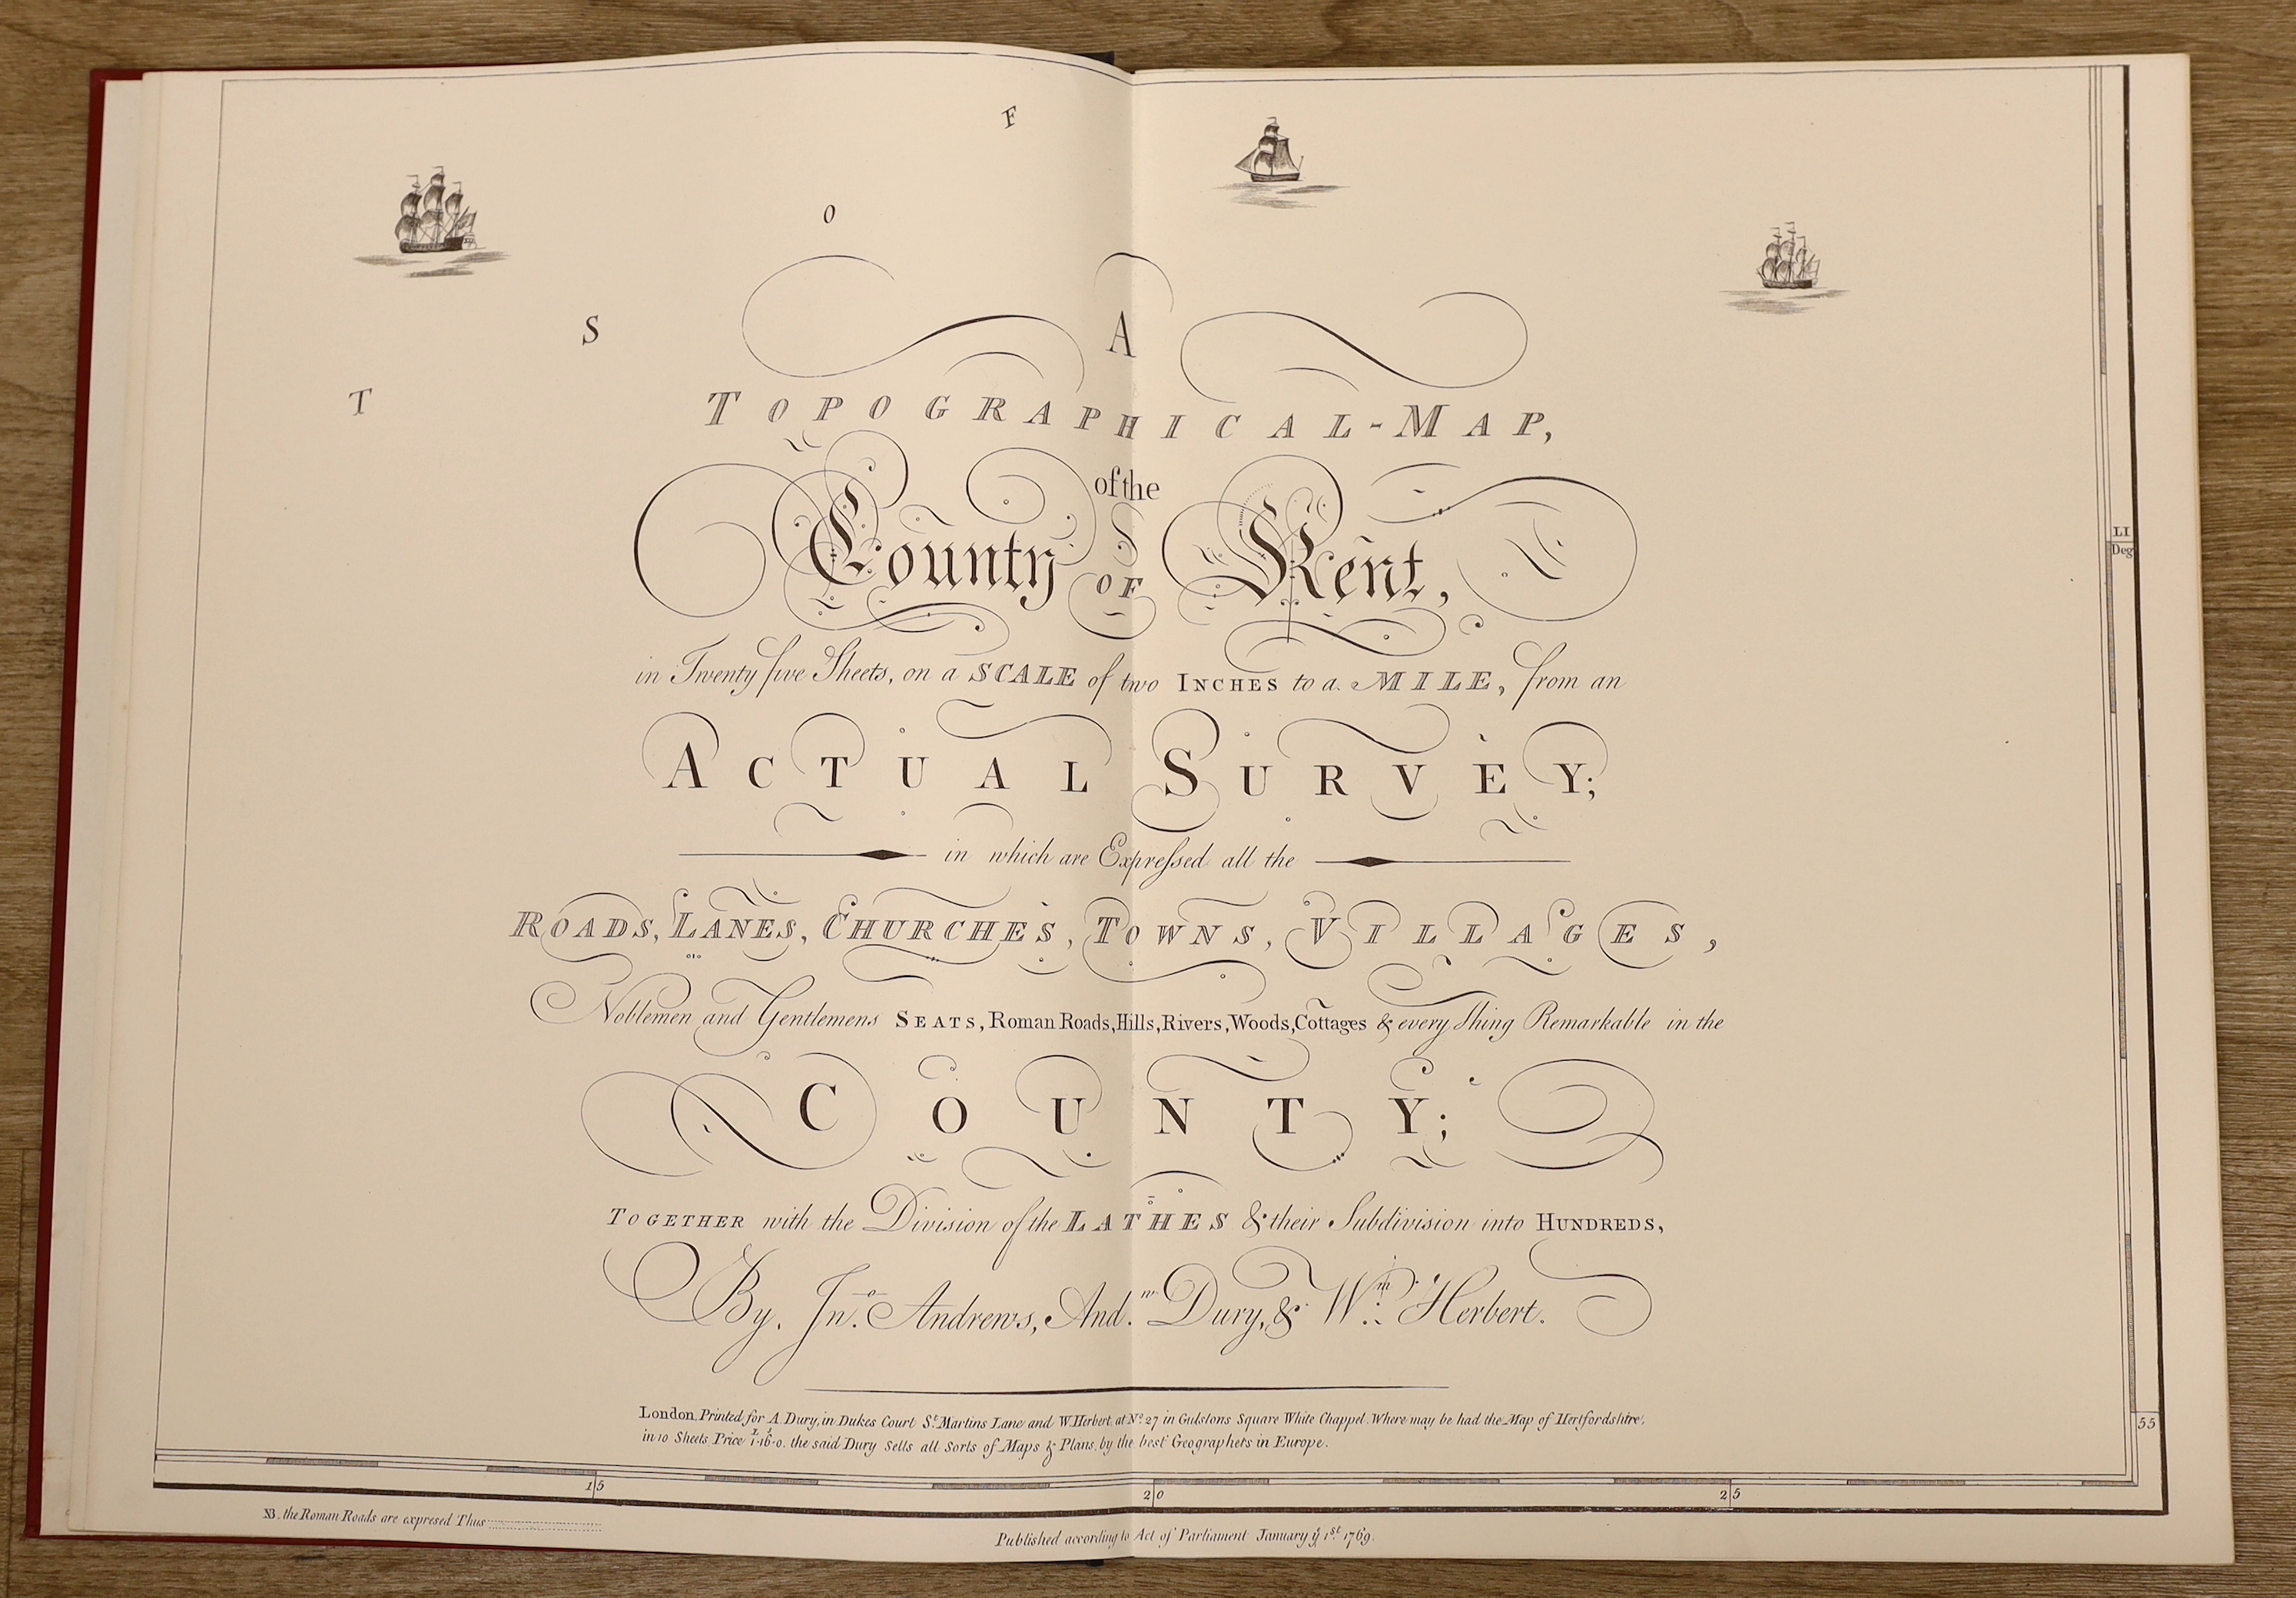 F
O
S
T
A
TOPOGRAPHICAL-MAP,
of the
County OF Kent,
in Twenty five Sheets, on a SCALE of two INCHES to a MILE, from an
ACTUAL SURVEY;
in which are Expreſsed all the
ROADS, LANES, CHURCHES, TOWNS, VILLAGES,
Noblemen and Gentlemens SEATS, Roman Roads, Hills, Rivers, Woods, Cottages & every thing Remarkable in the
COUNTY;
TOGETHER with the Division of the LATHES & their Subdivision into HUNDREDS,
By, Jn.º Andrews, And.ᵐ Dury, & Wᵐ Herbert.
London, Printed for A. Dury, in Dukes Court Sᵗ Martins Lane and W. Herbert, at Nº 27 in Gulstons Square White Chappel. Where may be had the Map of Hertfordshire,
in 10 Sheets, Price 1-16-0. the said Dury Sells all Sorts of Maps & Plans, by the best Geographers in Europe.
LI
Deg
55
15
20
25
NB. the Roman Roads are expresed Thus
Published according to Act of Parliament January yᵉ 1ˢᵗ 1769.